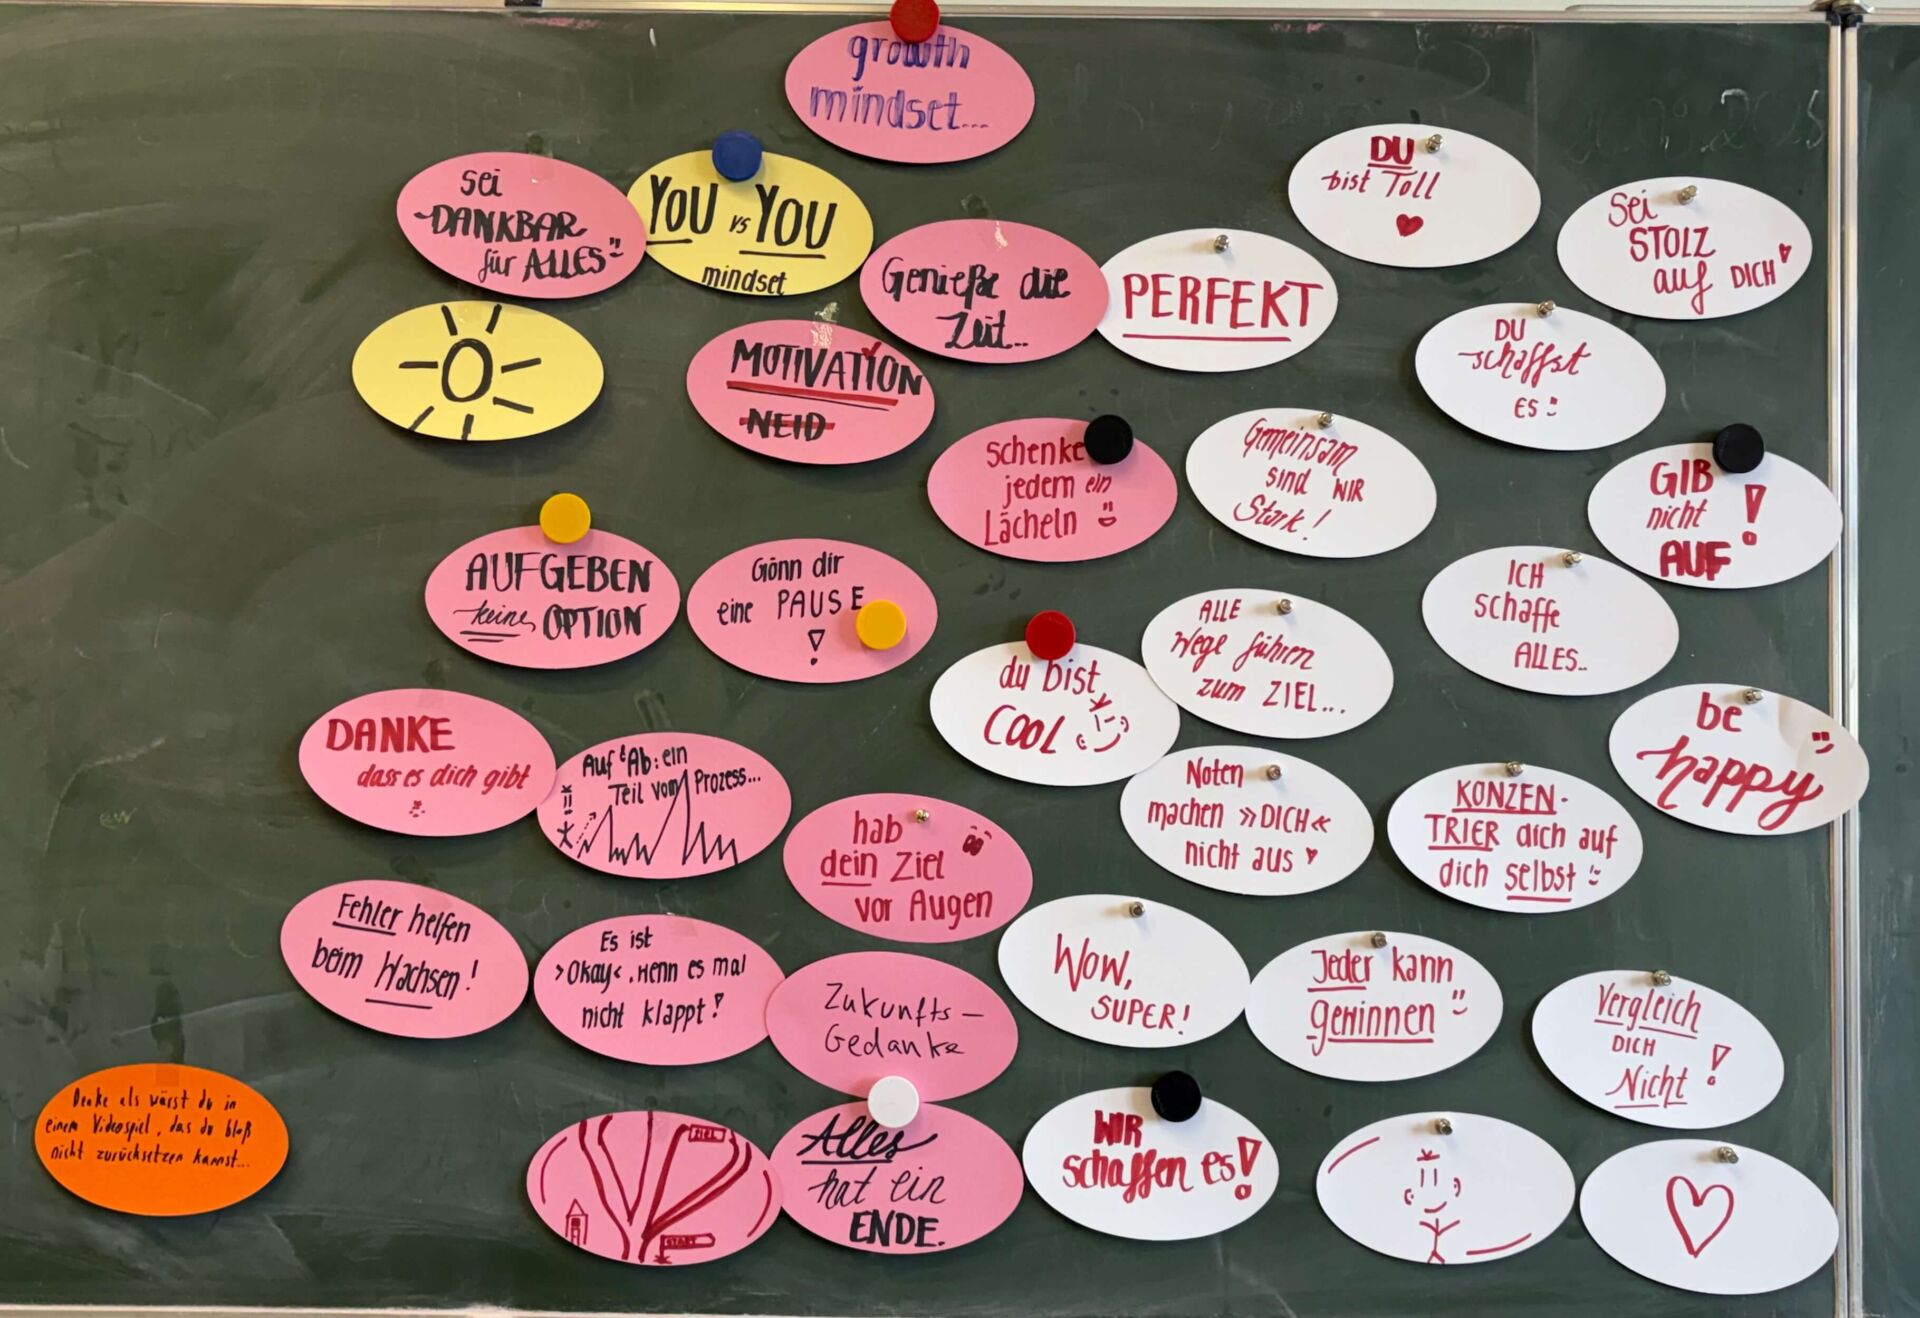 growth
mindset...
sei
DANKBAR
für ALLES
YOU vs YOU
mindset
Genieße die
Zeit..
PERFEKT
DU
bist Toll
Sei
STOLZ
auf DICH
MOTIVATION
NEID
DU
schaffst
ES
schenke
jedem ein
Lächeln
Gemeinsam
sind WIR
Stark!
GIB
nicht
AUF
!
AUFGEBEN
keine OPTION
Gönn dir
eine PAUSE
!
du bist
COOL
ALLE
Wege führen
zum ZIEL...
ICH
schaffe
ALLES..
be
happy
DANKE
dass es dich gibt
Auf & Ab: ein
Teil vom Prozess...
hab
dein Ziel
vor Augen
Noten
machen »DICH«
nicht aus
KONZEN-
TRIER dich auf
dich selbst
Fehler helfen
beim Wachsen!
Es ist
>Okay<, wenn es mal
nicht klappt!
Zukunfts-
Gedanke
Wow,
SUPER!
Jeder kann
gewinnen
Vergleich
DICH
Nicht!
Denke als wärst du in
einem Videospiel, das du bloß
nicht zurücksetzen kannst...
ZIEL
START
Alles
hat ein
ENDE.
WIR
schaffen es!